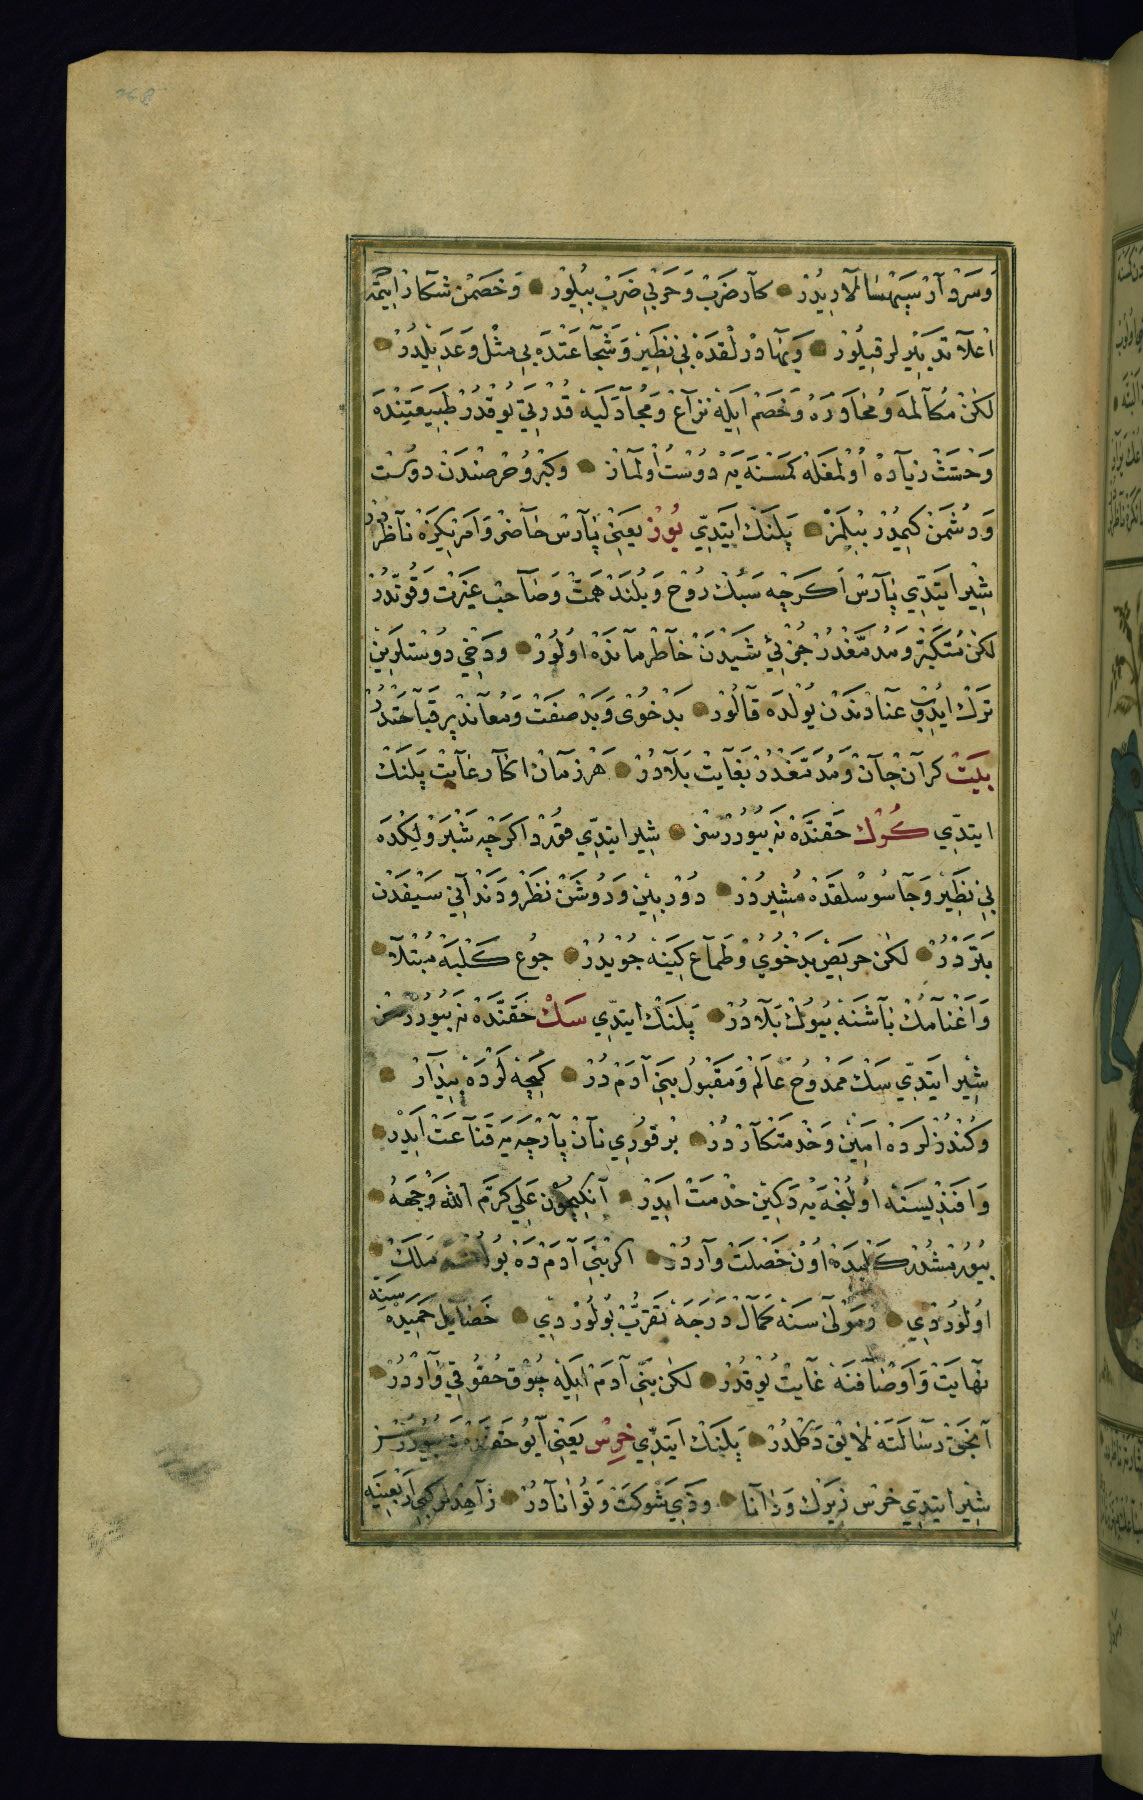 وَسَرْوَ آزْ سِپَهْسَالَارِيدُرْ ۞ كَارِ ضَرْبْ وَحَرْبِي ضَرْبْ بِيلُورْ ۞ وَخَصْمَنْ شِكَارْ ايتْمَگَه
اَعْلَا تَدْبِيرْلَرْ قِيلُورْ ۞ وَبَهَادُرْلُقْدَهْ بِي نَظِيرْ وَشَجَاعَتْدَه بِي مِثْل وَعَدِيلْدُرْ
لَكِنْ مُكَالَمَه وُ مُحَاوَرَهْ وَخَصْمْ اَيْلَهْ نِزَاعْ وَمُجَادَلَيَه قُدْرَتِي يُوقْدُرْ طَبِيعَتِنْدَه
وَحْشَتْ زِيَادَهْ اُولْمَغْلَهْ كِمْسَنَه يَه دُوسْتْ اُولْمَازْ ۞ وَكِبْرُ وُ حِرْصِنْدَنْ دُوسْتْ
وَدُشْمَنْ كِيمْدُرْ بِيلْمَزْ ۞ پَلَنْكْ ايتْدِي يُوزْ يَعْنِي پَارْسْ حَاضِرْ وَامْرِيكِزَهْ نَاظِرْدُرْ
شِيرْ ايتْدِي پَارْسْ اَكَرْچِه سَبُكْ رُوحْ وَبُلَنْدْ هِمَّتْ وَصَاحِبْ غَيْرَتْ وَقُوَّتْدُرْ
لَكِنْ مُتَكَبِّرْ وَمُدَمَّغْدُرْ جُزْئِي شَيْدَنْ خَاطِرْمَانْدَهْ اُولُورْ ۞ وَدَخِي دُوسْتْلَرِينْ
تَرْكْ ايدُبْ عِنَادِنْدَنْ يُولْدَه قَالُورْ ۞ بَدْ خُوىْ وَبَدْ صِفَتْ وَمُعَانِدْ پُرْ قَبَاحَتْدُرْ
بَيْتْ كِرَانْ جَانْ وَمُدَمَّغْدُرْ بَغَايَتْ بَلَادُرْ ۞ هَرْ زَمَانْ اكَا رِعَايَتْ پَلَنْكْ
ايتْدِي كُوْرْكْ حَقِنْدَهْ نَه بُيُورُرْسِزْ ۞ شِيرْ ايتْدِي قُورْدْ اكَرْچِه شَبْرَوْلِكْدَه
بِي نَظِيرْ وَجَاسُوسْلُقْدَهْ مُشِيرْدُرْ ۞ دُورْبِينْ وَرُوشَنْ نَظَرْ وَدَنْدَانِي سَيْفْدَنْ
بَتَّرْدُرْ ۞ لَكِنْ حَرِيصْ بَدْخُوىْ وُ طَمَاعْ كِينَه جُويْدُرْ ۞ جُوعْ كَلْبَهْ مُبْتَلَا
وَاَغْنَامُكْ بَاشِنَهْ بُيُوكْ بَلَادُرْ ۞ پَلَنْكْ ايتْدِي سَكْ حَقِنْدَهْ نَه بُيُورُرْسِزْ
شِيرْ ايتْدِي سَكْ مَمْدُوحِ عَالَمْ وَمَقْبُولْ بَنِي آدَمْدُرْ ۞ كِيجَه لَرْدَهْ بِيدَارْ
وَكُنْدُزْلَرْدَهْ اَمِينْ وَخِدْمَتْكَارْدُرْ ۞ بِرْ قُورِي نَانْ پَارْچَه يَه قَنَاعَتْ اَيْدَرْ
وَاَفَنْدِيسِنَه اُولُنْجَه يَه دَكِينْ خِدْمَتْ اَيْدَرْ ۞ آنِكِيچُونْ عَلِي كَرَّمَ اللّٰهُ وَجْهَهُ
بُيُورْمِشْدُرْ كَلْبَدَهْ اُونْ خَصْلَتْ وَارْدُرْ ۞ اكَرْ بَنِي آدَمْدَهْ بُولُنْسَه مَلَكْ
اُولُورْدِي ۞ وَمَوْلَاسِنَهْ كَمَالْ دَرَجَه تَقَرُّبْ بُولُورْدِي ۞ خَصَايِلْ حَمِيدَهْ سِنَه
نِهَايَتْ وَاَوْصَافِنَهْ غَايَتْ يُوقْدُرْ ۞ لَكِنْ بَنِي آدَمْ اَيْلَهْ چُوقْ حُقُوقِي وَارْدُرْ
آنْجَقْ رِسَالَتَه لَايِقْ دَكِلْدُرْ ۞ پَلَنْكْ ايتْدِي خِرْسْ يَعْنِي آيُو حَقِنْدَه نَه بُيُورُرْسِزْ
شِيرْ ايتْدِي خِرْسْ زِيرَكْ وَدَانَا ۞ وَذِي شَوْكَتْ وَتُوَانَادُرْ ۞ زَاهِدْلَرْ كِبِي اَرْبَعِينَه